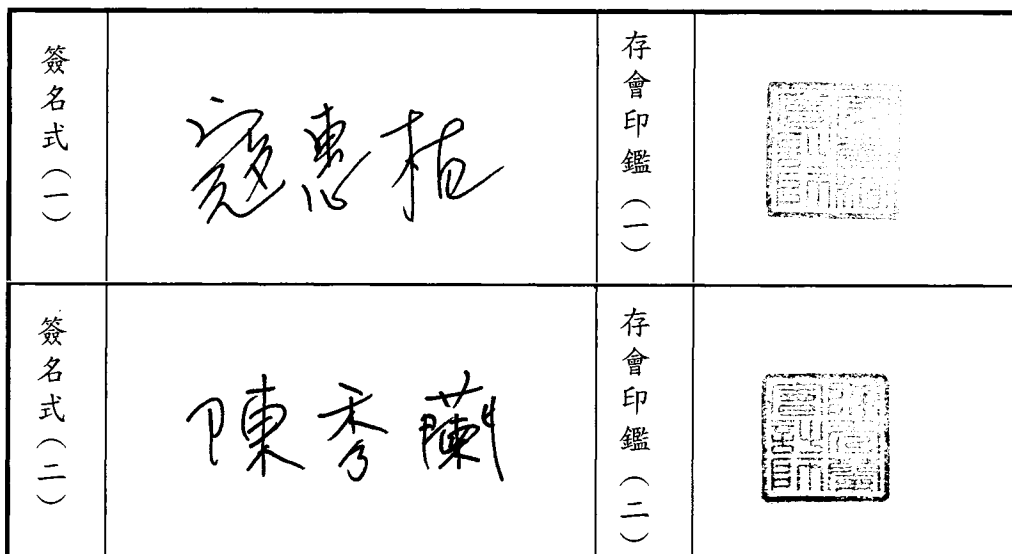 簽名式（一）
寇惠植
存會印鑑（一）
簽名式（二）
陳秀蘭
存會印鑑（二）